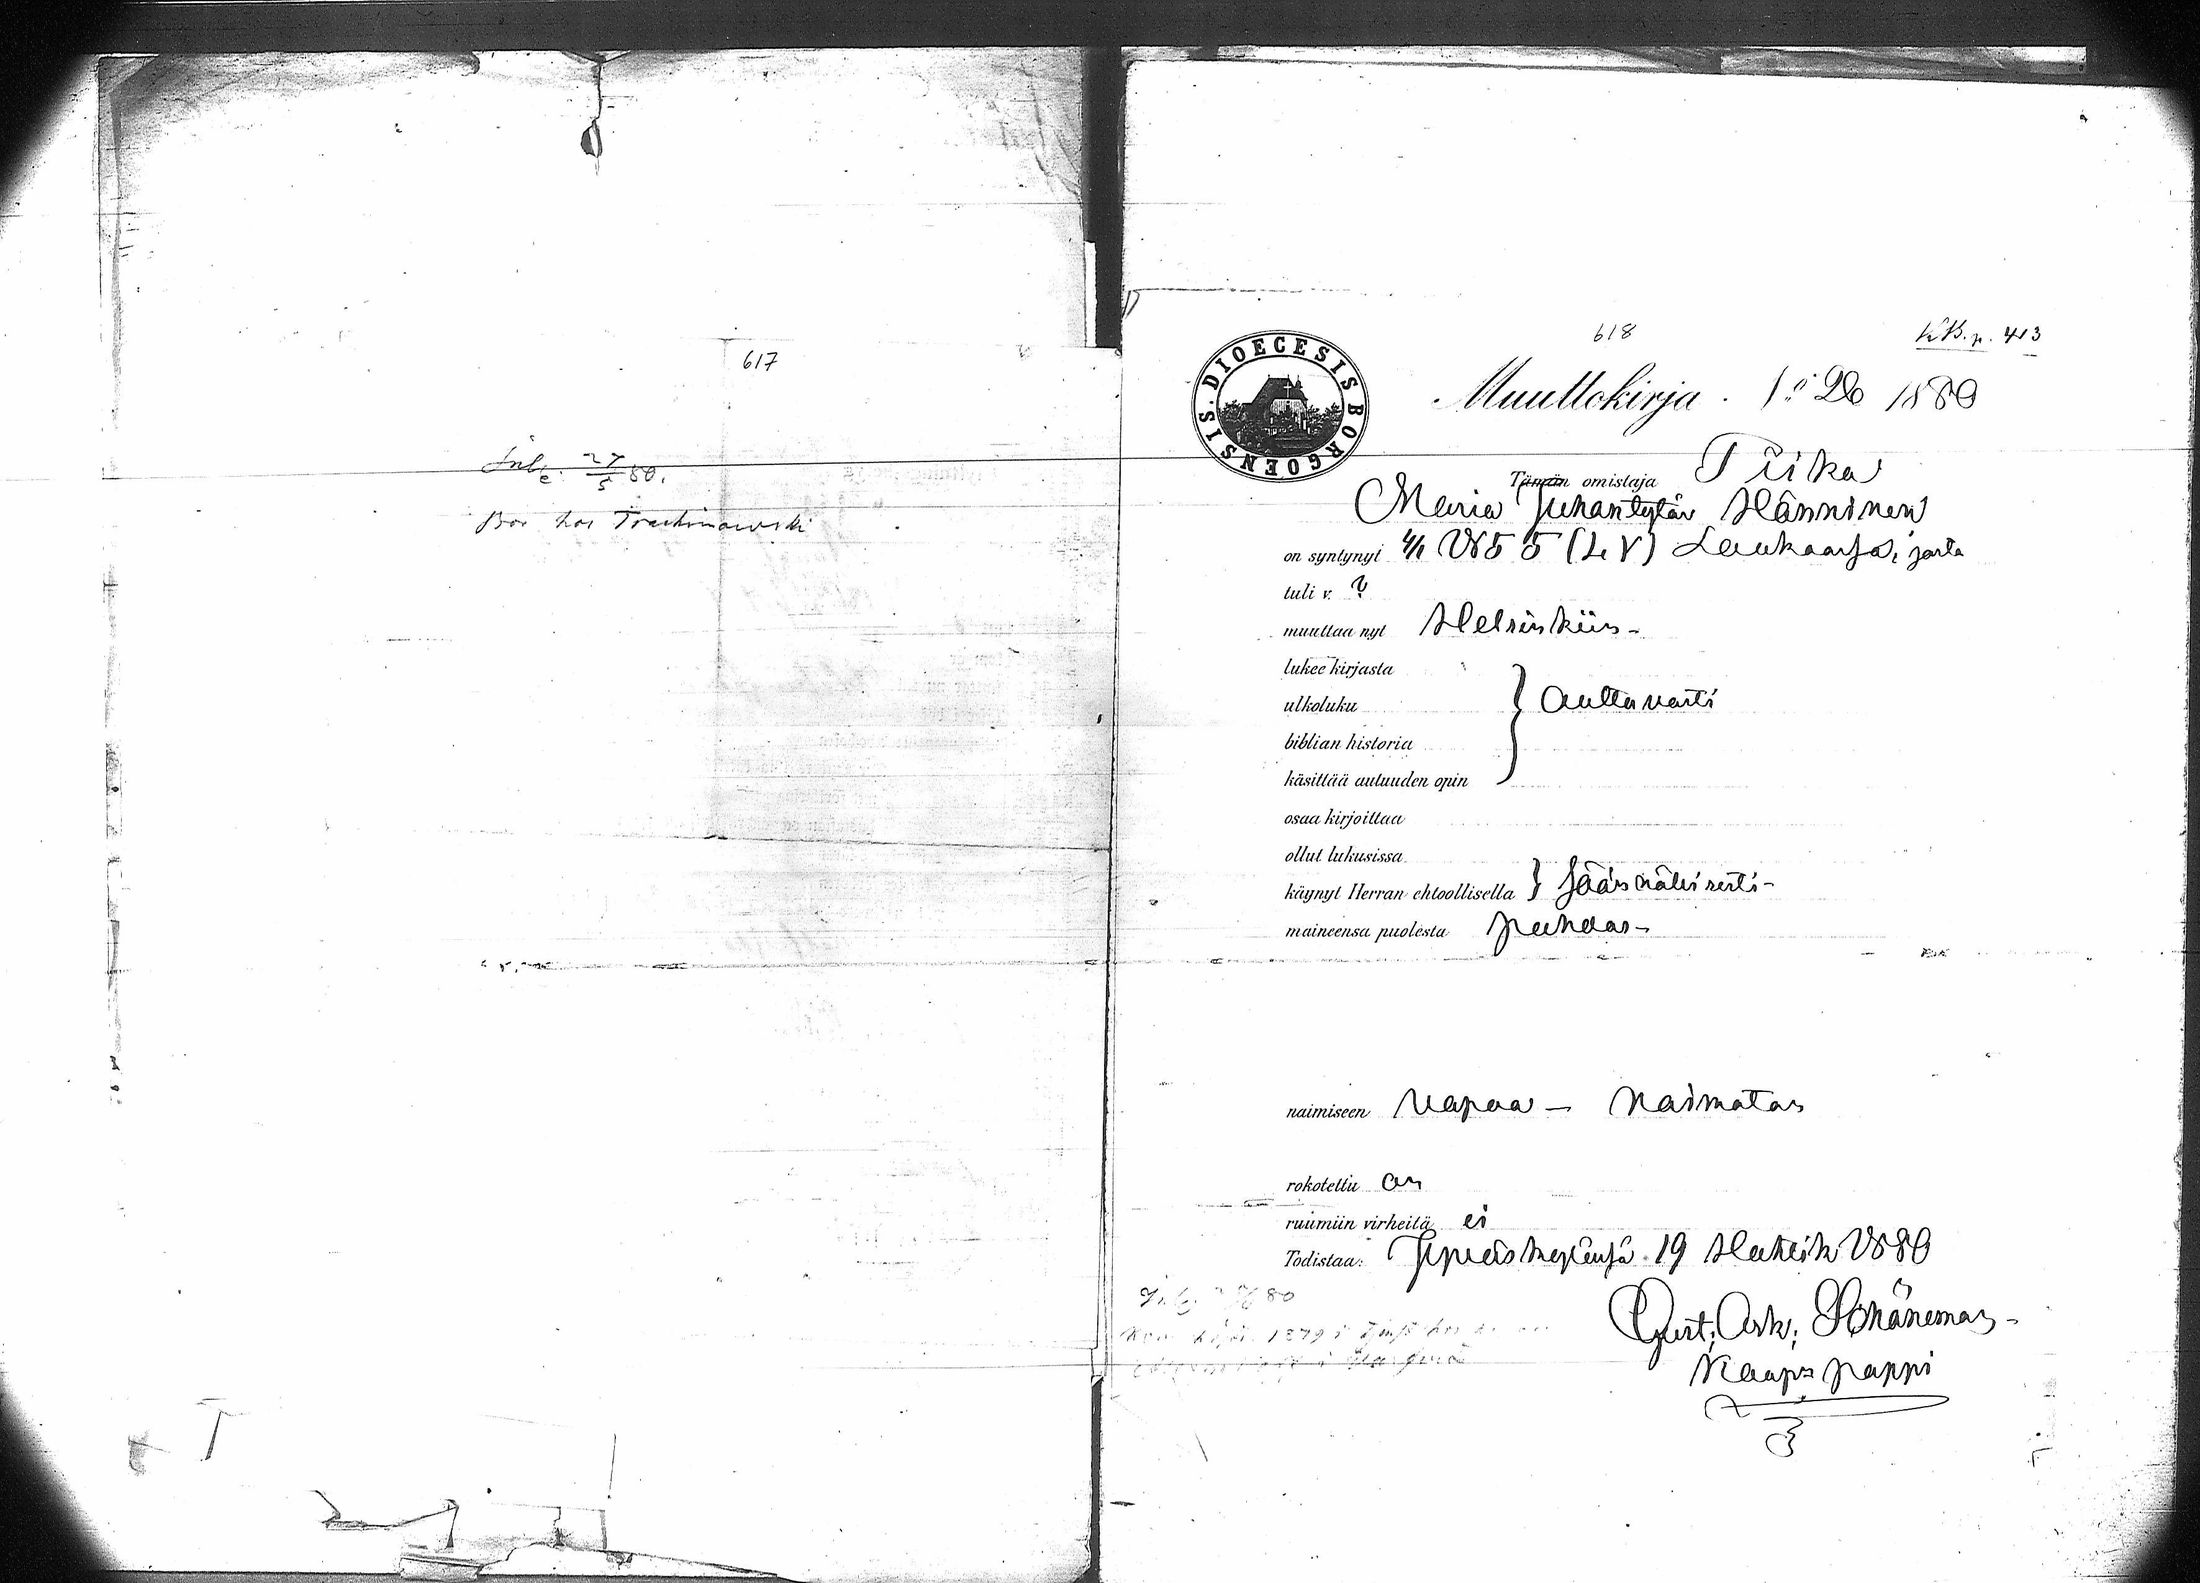 617
Inl. 27/5 80.
Bor hos Trachinowski
618
KB. p. 413
DIOECESIS BORGOENSIS.
Muuttokirja. N:o 26 1880
Tämän omistaja Piika
Maria Juhantytär Hänninen
on syntynyt 4/1 1855 (LV) Laukaassa, josta
tuli v. ?
muuttaa nyt Helsinkiin -
lukee kirjasta
ulkoluku } auttavasti
biblian historia
käsittää autuuden opin
osaa kirjoittaa
ollut lukusissa
käynyt Herran ehtoollisella } säännöllisesti -
maineensa puolesta puhdas -
naimiseen vapaa - naimaton
rokotettu on
ruumiin virheitä ei
Todistaa: 19 Huhtik 1880
80
1879 i hos
Gust. Ad.
Kapp. pappi